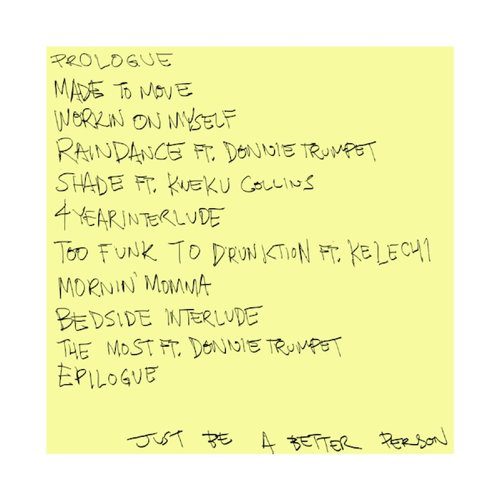 PROLOGUE
MADE TO MOVE
WORKIN' ON MYSELF
RAINDANCE FT. DONNIE TRUMPET
SHADE FT. KWEKU COLLINS
4 YEAR INTERLUDE
TOO FUNK TO DRUNKTION FT. KELECHI
MORNIN' MOMMA
BEDSIDE INTERLUDE
THE MOST FT. DONNIE TRUMPET
EPILOGUE
JUST BE A BETTER PERSON